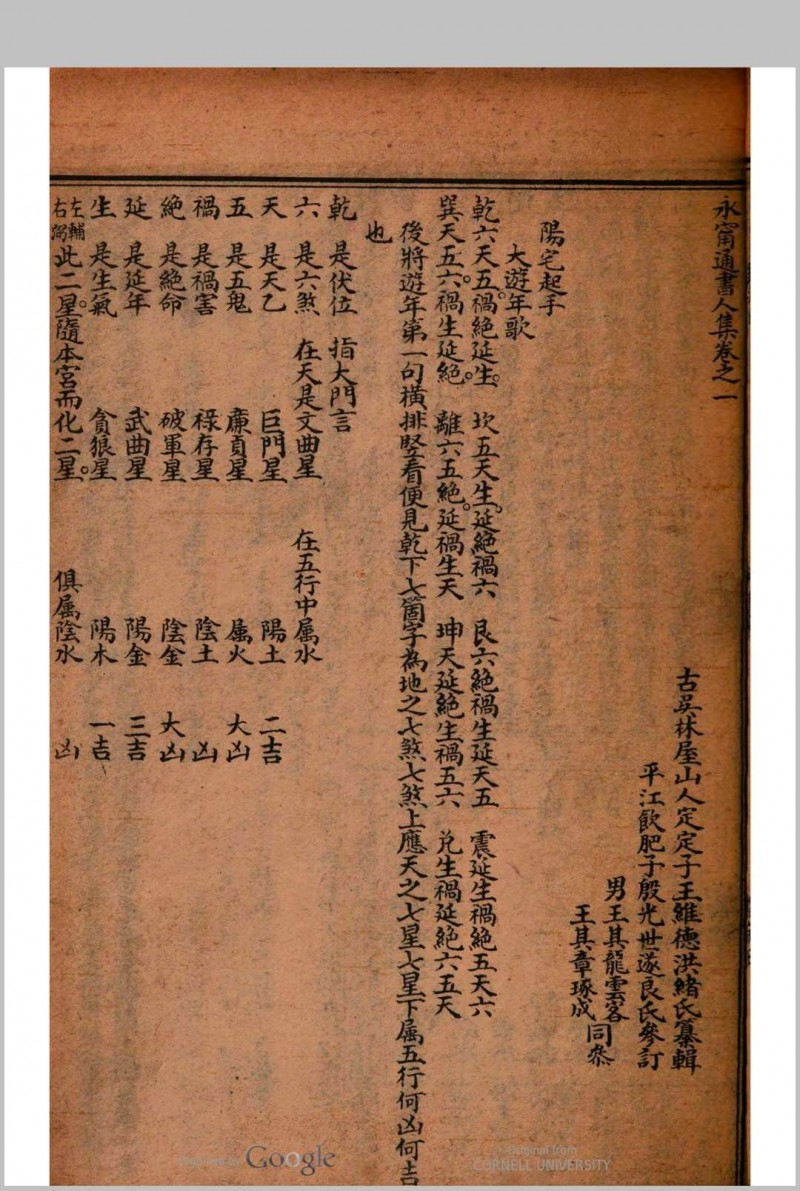 永甯通書人集卷之一
古吳林屋山人定定子王維德洪緒氏纂輯
平江飲肥子殷光世遂良氏參訂
男王其龍雲客
王其章琢成
同叅
陽宅起手
大遊年歌
乾六天五禍絕延生 坎五天生延絕禍六 艮六絕禍生延天五 震延生禍絕五天六
巽天五六禍生延絕 離六五絕延禍生天 坤天延絕生禍五六 兌生禍延絕六五天
後將遊年第一句橫排竪看便見乾下七箇字為地之七煞七煞上應天之七星七星下属五行何凶何吉
也
乾 是伏位 指大門言
六 是六煞 在天是文曲星 在五行中属水
天 是天乙 巨門星 陽土 二吉
五 是五鬼 廉貞星 属火 大凶
禍 是禍害 祿存星 陰土 凶
絕 是絕命 破軍星 陰金 大凶
延 是延年 武曲星 陽金 三吉
生 是生氣 貪狼星 陽木 一吉
左輔右弼 此二星隨本宮而化二星 俱属陰水 凶
Google
Original from
CORNELL UNIVERSITY